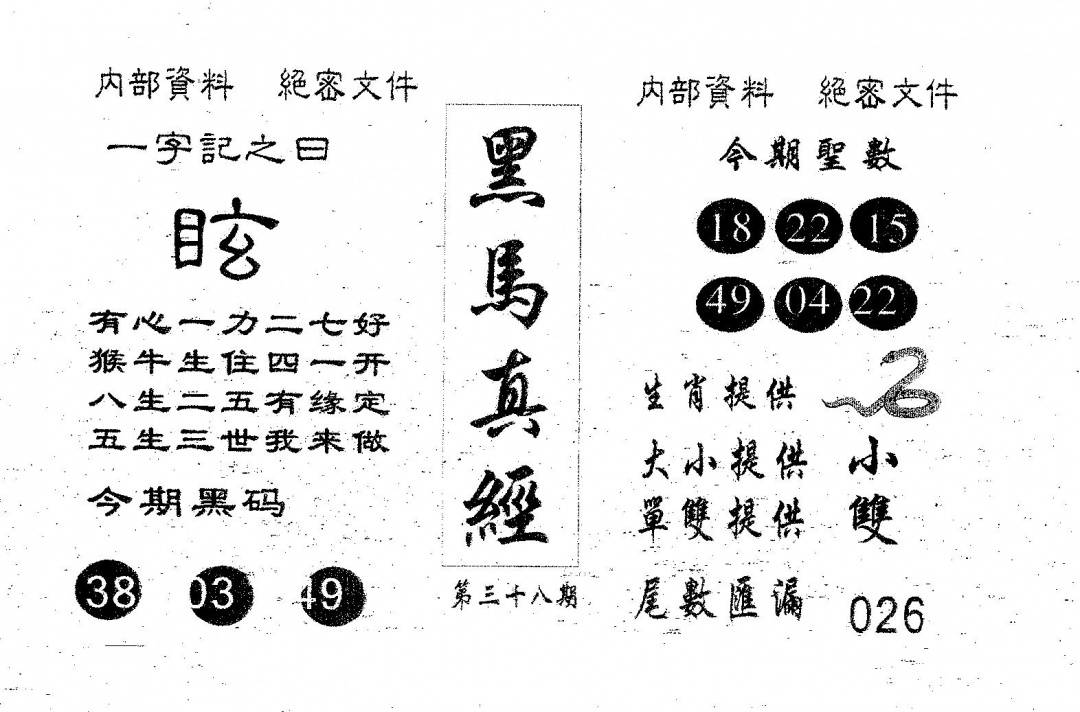 內部資料 絕密文件
一字記之曰
眩
有心一力二七好
猴牛生住四一开
八生二五有缘定
五生三世我来做
今期黑码
38 03 49
黑馬真經
第三十八期
內部資料 絕密文件
今期聖數
18 22 15
49 04 22
生肖提供
大小提供 小
單雙提供 雙
尾數匯漏 026